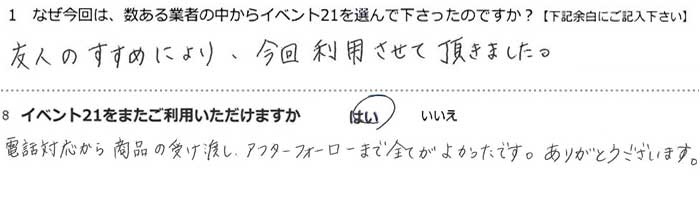 1 なぜ今回は、数ある業者の中からイベント21を選んで下さったのですか？【下記余白にご記入下さい】
友人のすすめにより、今回利用させて頂きました。
8 イベント21をまたご利用いただけますか はい いいえ
電話対応から商品の受け渡し、アフターフォローまで全てがよかったです。ありがとうございます。